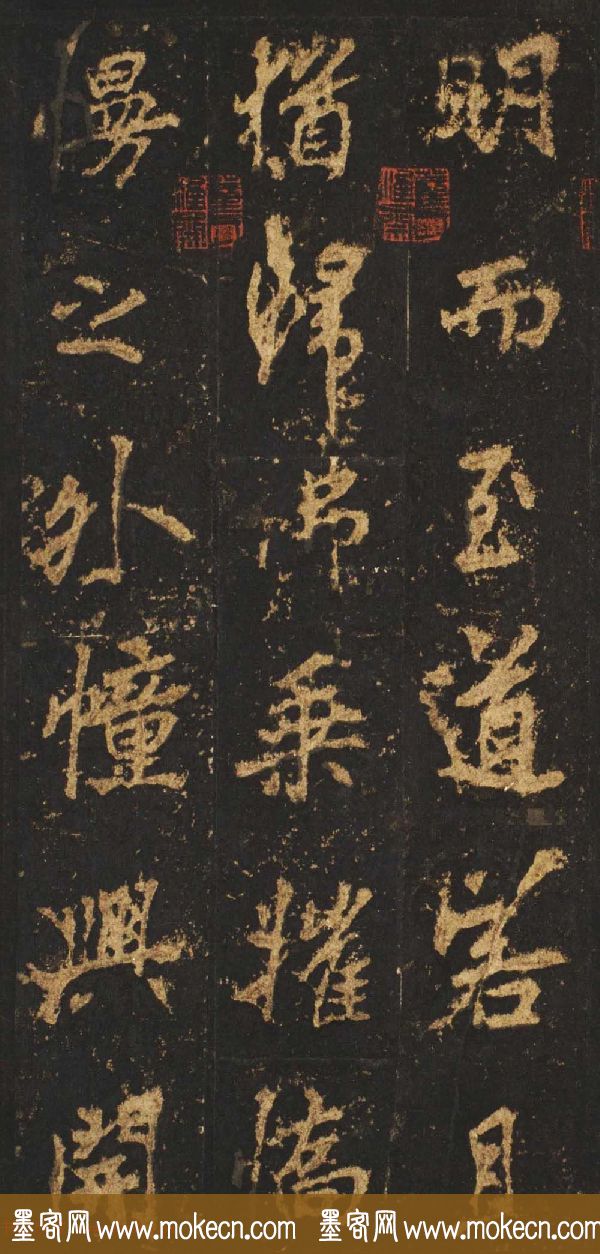 明而至道若月
猶歸佛乘摧憍
慢之外幢興開
墨客网 www.mokecn.com 墨客网 www.mokecn.com